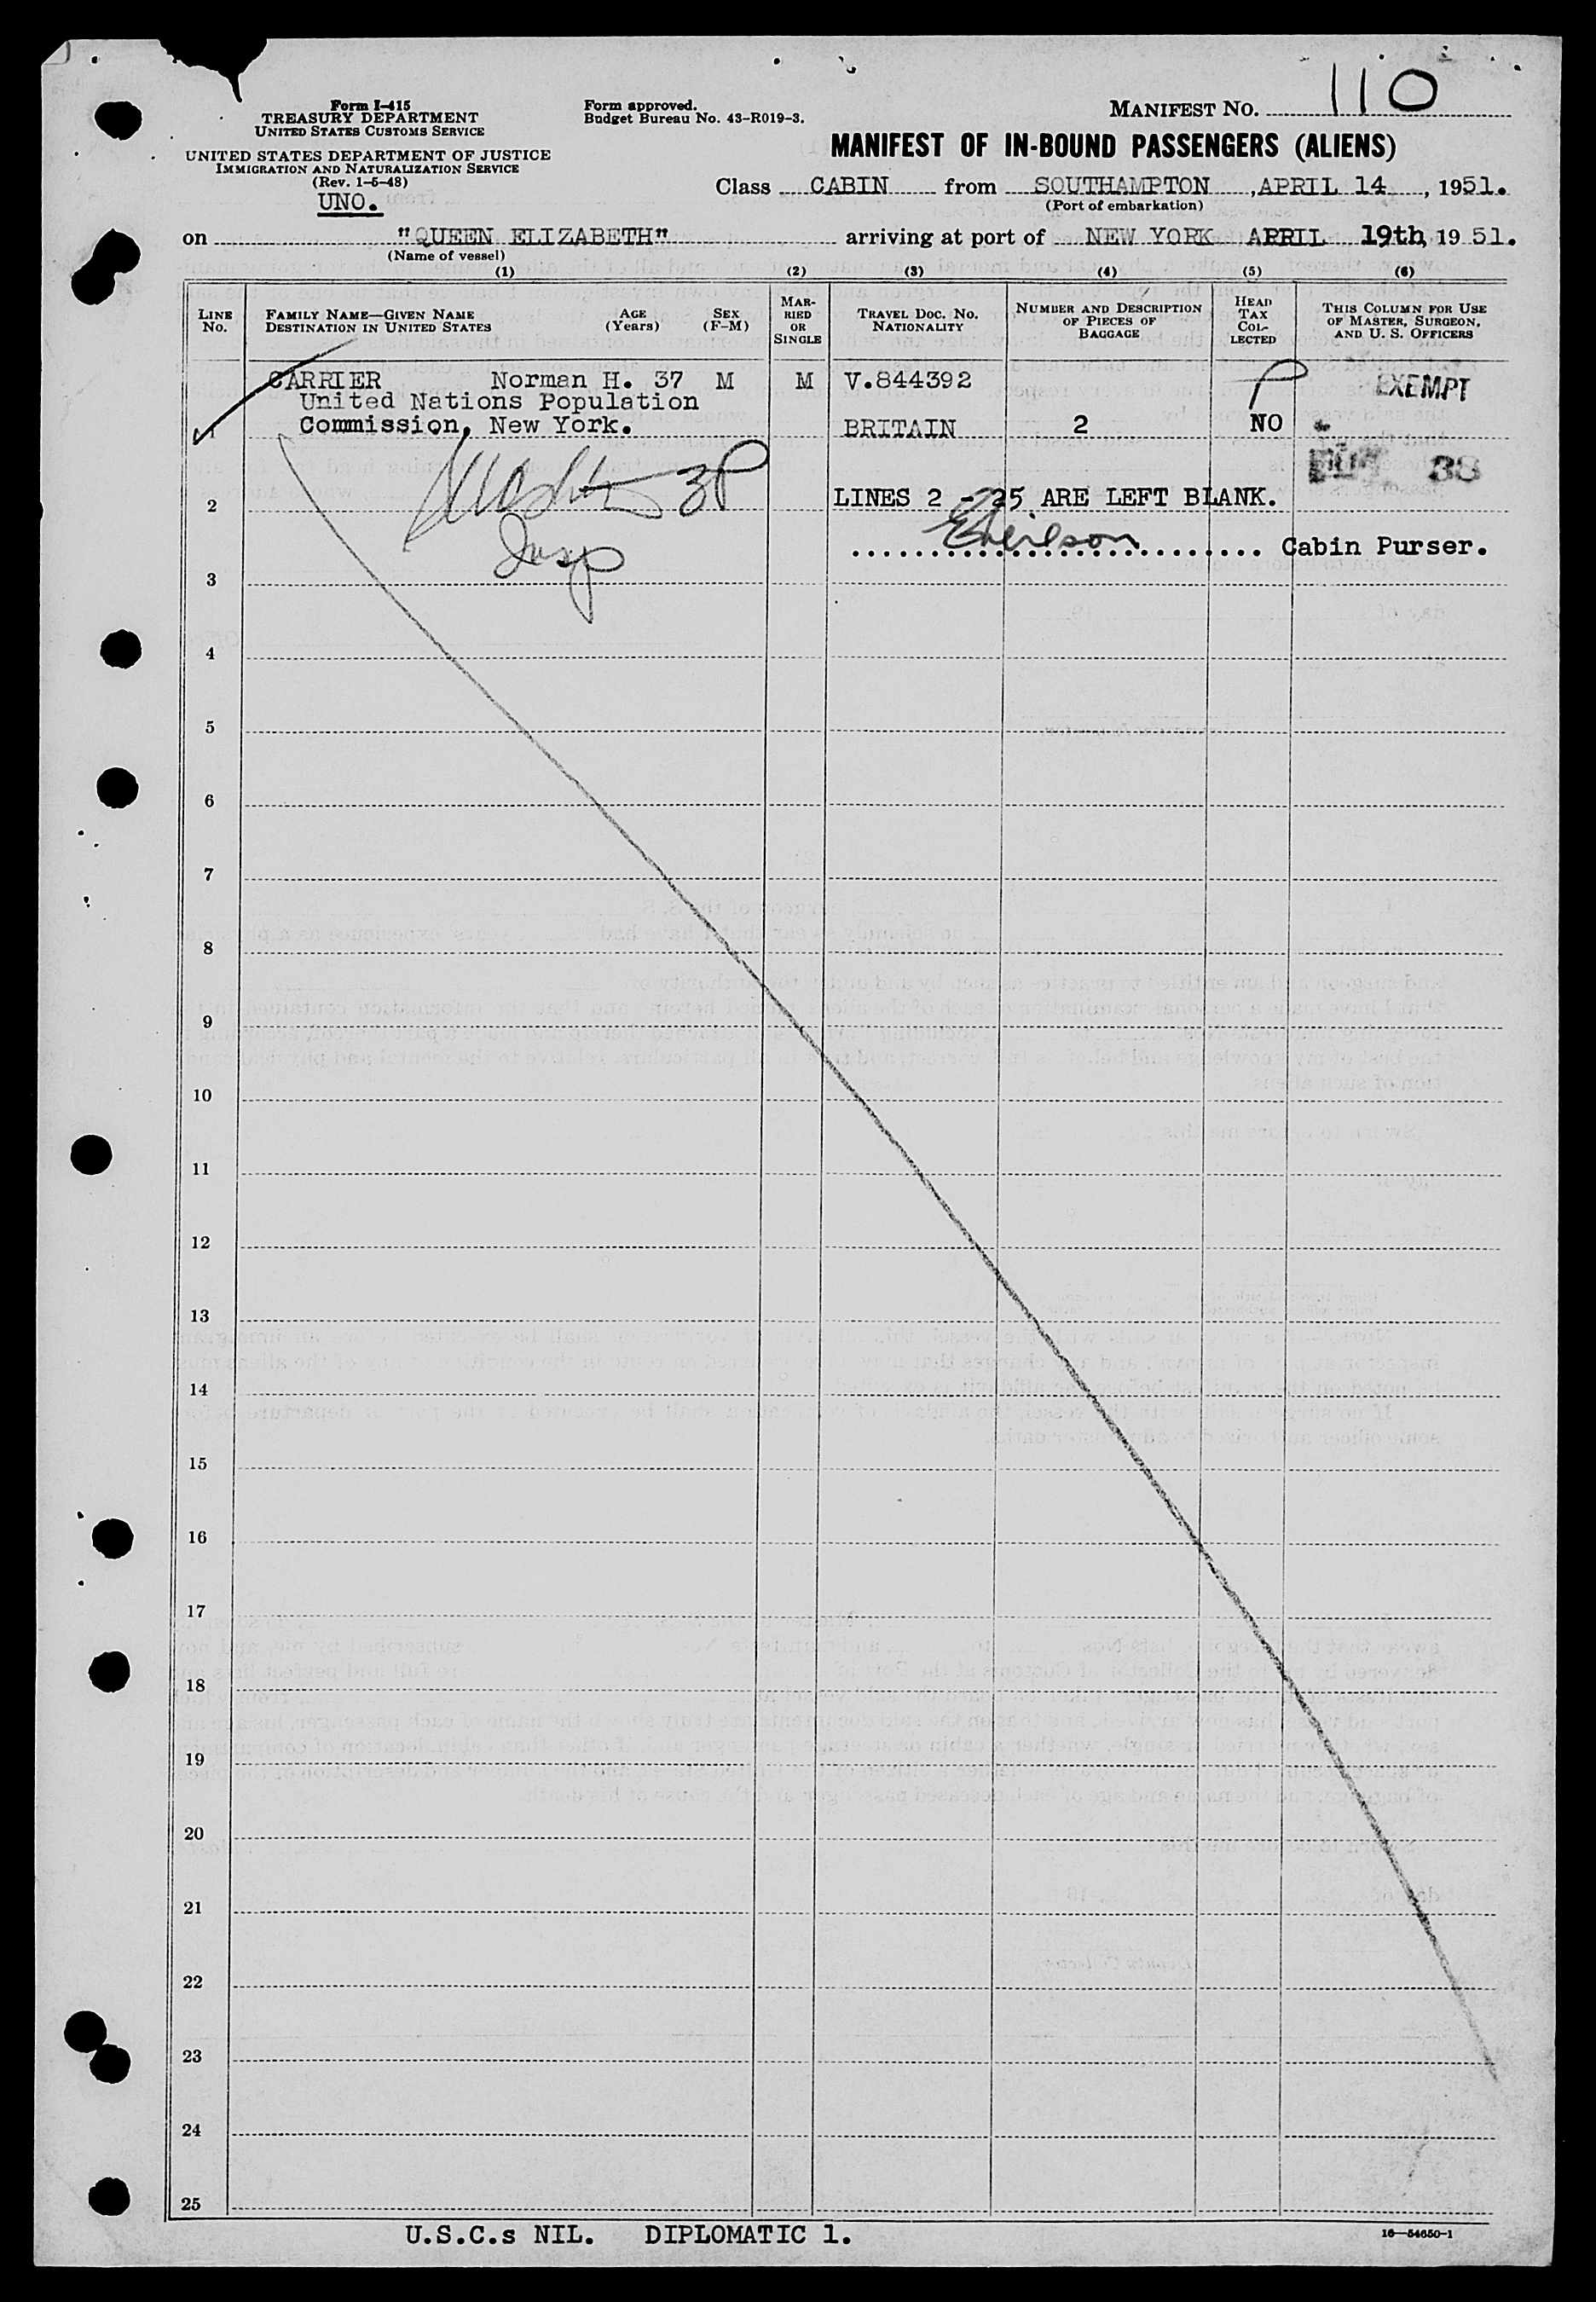 Form I-415
TREASURY DEPARTMENT
UNITED STATES CUSTOMS SERVICE
UNITED STATES DEPARTMENT OF JUSTICE
IMMIGRATION AND NATURALIZATION SERVICE
(Rev. 1-5-48)
UNO.
Form approved.
Budget Bureau No. 43-R019-3.
MANIFEST NO. 110
MANIFEST OF IN-BOUND PASSENGERS (ALIENS)
Class CABIN from SOUTHAMPTON, APRIL 14, 1951.
(Port of embarkation)
on "QUEEN ELIZABETH" arriving at port of NEW YORK APRIL 19th, 1951.
(Name of vessel)
(1) (2) (3) (4) (5) (6)
LINE No. FAMILY NAME—GIVEN NAME DESTINATION IN UNITED STATES AGE (Years) SEX (F-M) MARRIED OR SINGLE TRAVEL DOC. NO. NATIONALITY NUMBER AND DESCRIPTION OF PIECES OF BAGGAGE HEAD TAX COLLECTED THIS COLUMN FOR USE OF MASTER, SURGEON, AND U. S. OFFICERS
CARRIER Norman H. 37 M M V.844392 EXEMPT
United Nations Population
1 Commission, New York. BRITAIN 2 NO
38
2 LINES 2 - 25 ARE LEFT BLANK.
Insp
Cabin Purser.
3
4
5
6
7
8
9
10
11
12
13
14
15
16
17
18
19
20
21
22
23
24
25
U.S.C.s NIL. DIPLOMATIC 1.
16—54650-1